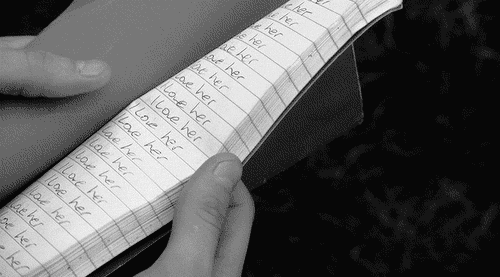 her
her
her
love her
love her
love her
love her
love her
I love her
love her
love her
love her
I love her
love her
love her
love her
love her
love her